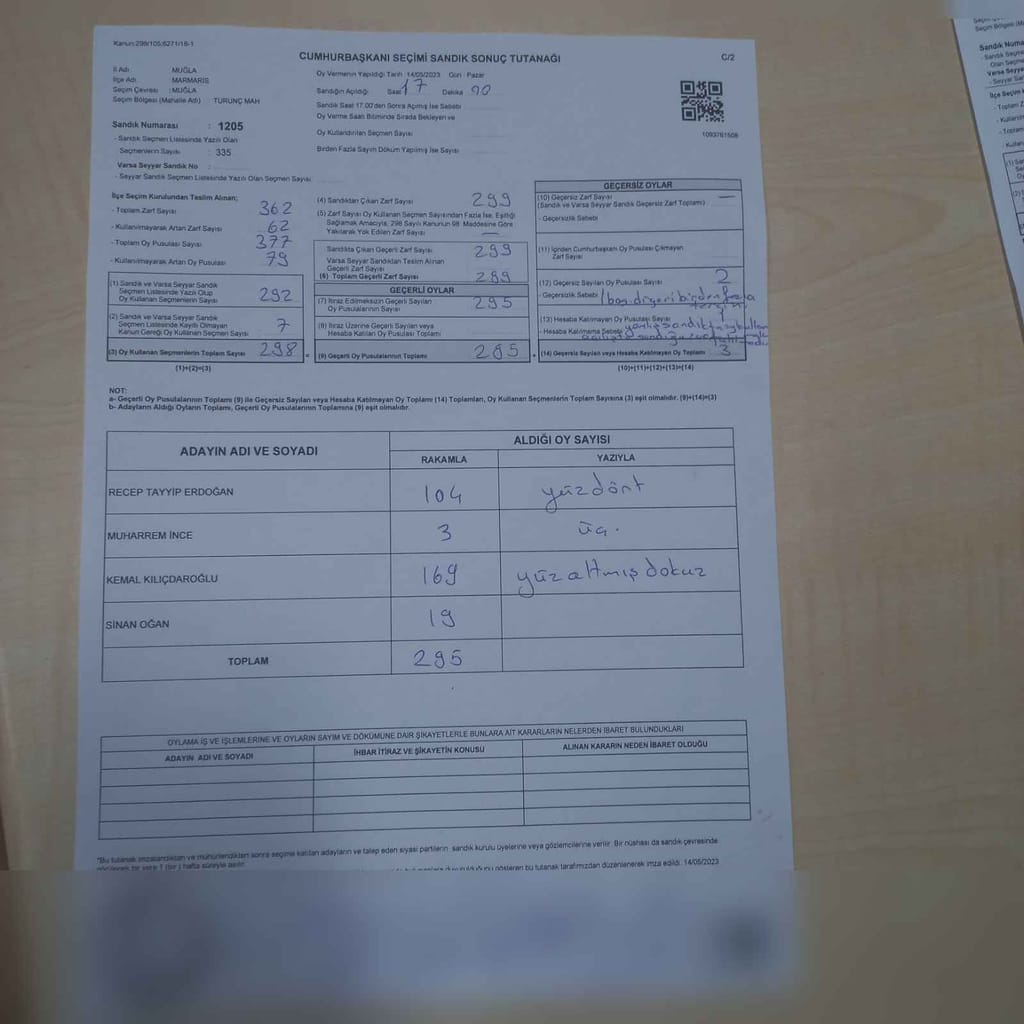 Kanun:298/105;6271/18-1
CUMHURBAŞKANI SEÇİMİ SANDIK SONUÇ TUTANAĞI
C/2
İl Adı : MUĞLA
İlçe Adı : MARMARİS
Seçim Çevresi : MUĞLA
Seçim Bölgesi (Mahalle Adı) : TURUNÇ MAH
Oy Vermenin Yapıldığı Tarih 14/05/2023 Gün : Pazar
Sandığın Açıldığı Saat 17 Dakika
Sandık Saat 17:00'den Sonra Açmış İse Sebebi
Oy Verme Saati Bitiminde Sırada Bekleyen ve
Oy Kullandırılan Seçmen Sayısı
Birden Fazla Sayım Döküm Yapılmış İse Sayısı
Sandık Numarası : 1205
- Sandık Seçmen Listesinde Yazılı Olan
Seçmenlerin Sayısı : 335
Varsa Seyyar Sandık No
- Seyyar Sandık Seçmen Listesinde Yazılı Olan Seçmen Sayısı
1093761508
İlçe Seçim Kurulundan Teslim Alınan;
- Toplam Zarf Sayısı 362
- Kullanılmayarak Artan Zarf Sayısı 62
- Toplam Oy Pusulası Sayısı 377
- Kullanılmayarak Artan Oy Pusulası 79
(1) Sandık ve Varsa Seyyar Sandık
Seçmen Listesinde Yazılı Olup
Oy Kullanan Seçmenlerin Sayısı 292
(2) Sandık ve Varsa Seyyar Sandık
Seçmen Listesinde Kayıtlı Olmayan
Kanun Gereği Oy Kullanan Seçmen Sayısı 7
(3) Oy Kullanan Seçmenlerin Toplam Sayısı 298 =
(1)+(2)=(3)
(4) Sandıktan Çıkan Zarf Sayısı 299
(5) Zarf Sayısı Oy Kullanan Seçmen Sayısından Fazla İse, Eşitliği
Sağlamak Amacıyla, 298 Sayılı Kanunun 98. Maddesine Göre
Yakılarak Yok Edilen Zarf Sayısı —
Sandıkta Çıkan Geçerli Zarf Sayısı 299
Varsa Seyyar Sandıktan Teslim Alınan
Geçerli Zarf Sayısı
(6) Toplam Geçerli Zarf Sayısı 299
GEÇERLİ OYLAR
(7) İtiraz Edilmeksizin Geçerli Sayılan
Oy Pusulalarının Sayısı 295
(8) İtiraz Üzerine Geçerli Sayılan veya
Hesaba Katılan Oy Pusulası Toplamı
(9) Geçerli Oy Pusulalarının Toplamı 295 +
GEÇERSİZ OYLAR
(10) Geçersiz Zarf Sayısı —
(Sandık ve Varsa Seyyar Sandık Geçersiz Zarf Toplamı)
- Geçersizlik Sebebi
(11) İçinden Cumhurbaşkanı Oy Pusulası Çıkmayan
Zarf Sayısı
(12) Geçersiz Sayılan Oy Pusulası Sayısı 2
- Geçersizlik Sebebi 1 boş diğeri birden fazla
tercih
(13) Hesaba Katılmayan Oy Pusulası Sayısı 1
- Hesaba Katılmama Sebebi yanlış sandıkta oy
(14) Geçersiz Sayılan veya Hesaba Katılmayan Oy Toplamı 3
(10)+(11)+(12)+(13)=(14)
NOT:
a- Geçerli Oy Pusulalarının Toplamı (9) ile Geçersiz Sayılan veya Hesaba Katılmayan Oy Toplamı (14) Toplamları, Oy Kullanan Seçmenlerin Toplam Sayısına (3) eşit olmalıdır. (9)+(14)=(3)
b- Adayların Aldığı Oyların Toplamı, Geçerli Oy Pusulalarının Toplamına (9) eşit olmalıdır.
ADAYIN ADI VE SOYADI
ALDIĞI OY SAYISI
RAKAMLA YAZIYLA
RECEP TAYYİP ERDOĞAN 104 yüzdört
MUHARREM İNCE 3 üç.
KEMAL KILIÇDAROĞLU 169 yüzaltmışdokuz
SİNAN OĞAN 19
TOPLAM 295
OYLAMA İŞ VE İŞLEMLERİNE VE OYLARIN SAYIM VE DÖKÜMÜNE DAİR ŞİKAYETLERLE BUNLARA AİT KARARLARIN NELERDEN İBARET BULUNDUKLARI
ADAYIN ADI VE SOYADI İHBAR İTİRAZ VE ŞİKAYETİN KONUSU ALINAN KARARIN NEDEN İBARET OLDUĞU
*Bu tutanak imzalandıktan ve mühürlendikten sonra seçime katılan adayların ve talep eden siyasi partilerin sandık kurulu üyelerine veya gözlemcilerine verilir. Bir nüshası da sandık çevresinde
görülecek bir yere 1 (bir) hafta süreyle asılır.
gösteren bu tutanak tarafımızdan düzenlenerek imza edildi. 14/05/2023
Sandık Numara